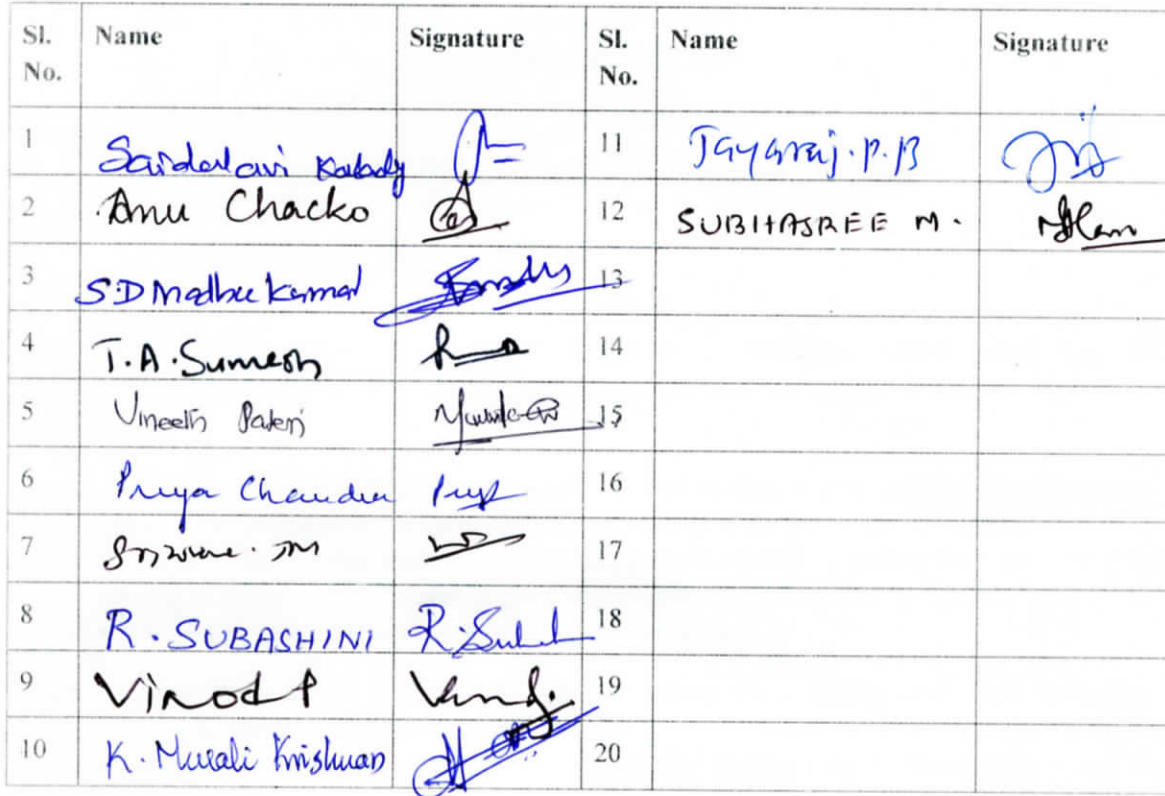 Sl. No. Name Signature Sl. No. Name Signature
1 Saidalavi Kalady 11 Jayaraj. P. B
2 Anu Chacko 12 SUBHASREE M.
3 S.D Madhu Kumar 13
4 T.A. Sumesh 14
5 Vineeth Paleri 15
6 Priya Chandran 16
7 M 17
8 R. SUBASHINI R. 18
9 Vinod P 19
10 K. Murali Krishnan 20